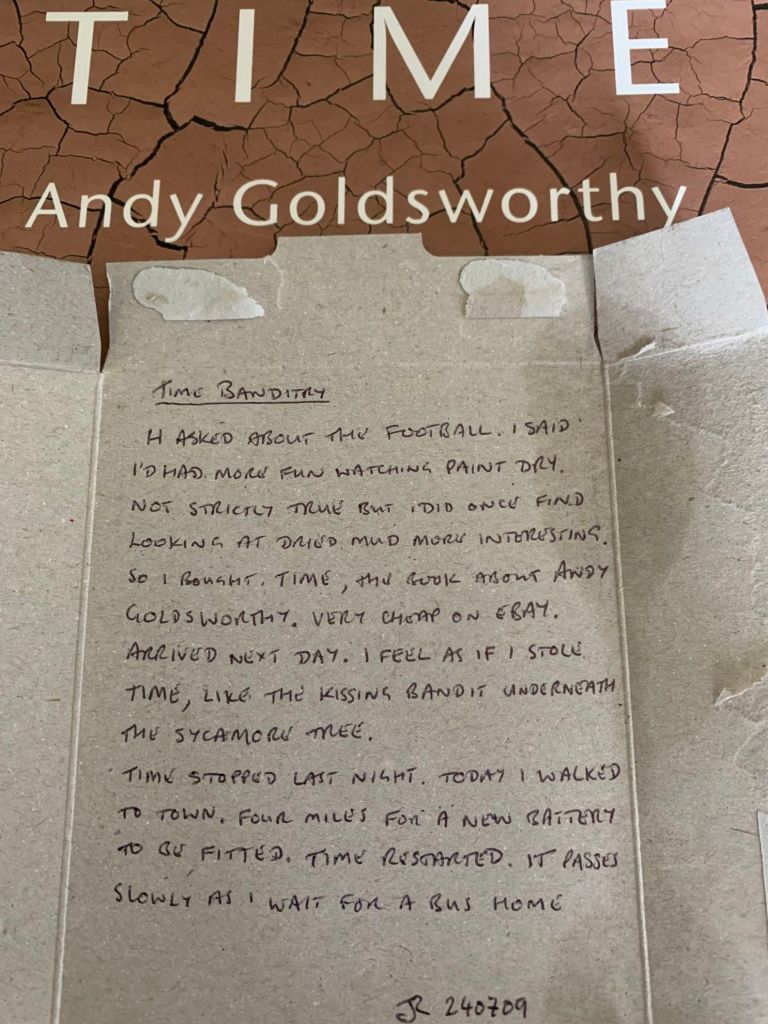 TIME
Andy Goldsworthy
TIME BANDITRY
H ASKED ABOUT THE FOOTBALL. I SAID
I'D HAD MORE FUN WATCHING PAINT DRY.
NOT STRICTLY TRUE BUT I DID ONCE FIND
LOOKING AT DRIED MUD MORE INTERESTING.
SO I BOUGHT. TIME, THE BOOK ABOUT ANDY
GOLDSWORTHY. VERY CHEAP ON EBAY.
ARRIVED NEXT DAY. I FEEL AS IF I STOLE
TIME, LIKE THE KISSING BANDIT UNDERNEATH
THE SYCAMORE TREE.
TIME STOPPED LAST NIGHT. TODAY I WALKED
TO TOWN. FOUR MILES FOR A NEW BATTERY
TO BE FITTED. TIME RESTARTED. IT PASSES
SLOWLY AS I WAIT FOR A BUS HOME
JR 240709